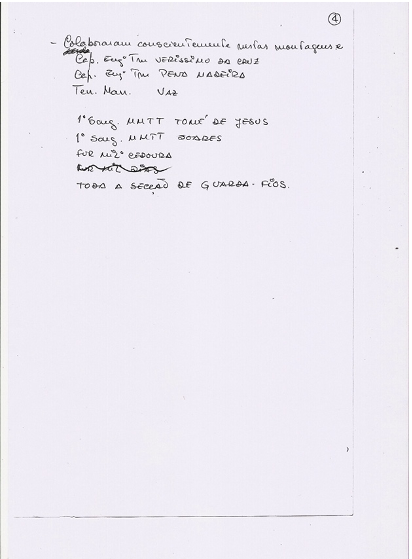 4
- Colaboraram conscientemente nestas montagens
Cap. Engº Tm VERISSIMO DA CRUZ
Cap. Engº Tm PENA MADEIRA
Ten. Man. VAZ
1º Sarg. MMTT TOMÉ DE JESUS
1º Sarg. MMTT SOARES
FUR Milº CEDOURA
FUR MIL DIAS
TODA A SECÇÃO DE GUARDA-FIOS.